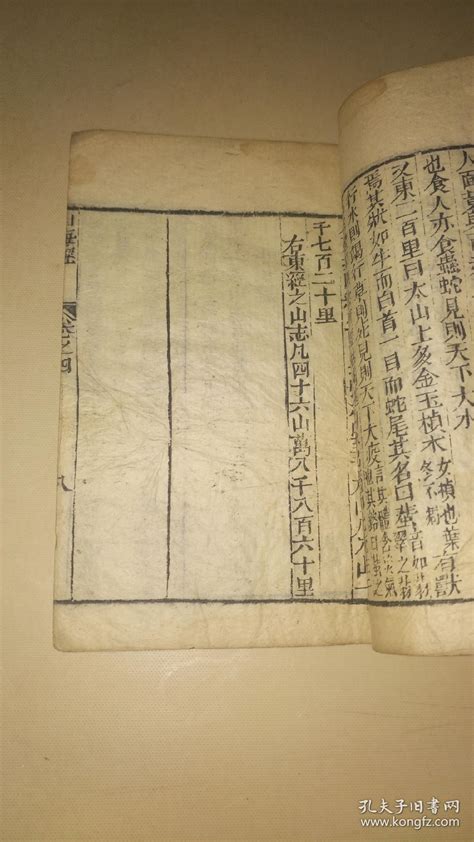 人面
也食人亦食蟲蛇見則天下大水
又東二百里曰太山上多金玉楨木女楨也葉冬不凋有獸
焉其狀如牛而白首一目而蛇尾其名曰蜚音如翡翠之翡
行水則竭行草則死見則天下大疫言其體含災氣
千七百二十里
右東經之山志凡四十六山萬八千八百六十里
山海經 卷之四 八
孔夫子旧书网
www.kongfz.com